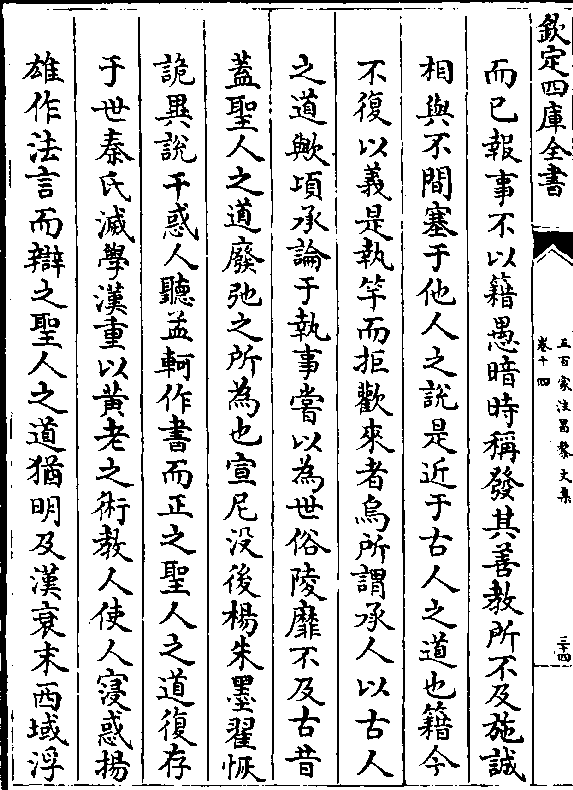 欽定四庫全書
五百家注昌黎文集
卷十四
三十四
而已報事不以籍愚暗時稱發其善教所不及施誠
相與不間塞于他人之說是近于古人之道也籍今
不復以義是執竿而拒歡來者烏所謂承人以古人
之道歟頃承論于執事嘗以為世俗陵靡不及古昔
蓋聖人之道廢弛之所為也宣尼没後楊朱墨翟恢
詭異說干惑人聽孟軻作書而正之聖人之道復存
于世秦氏滅學漢重以黃老之術教人使人寖惑揚
雄作法言而辯之聖人之道猶明及漢衰末西域浮